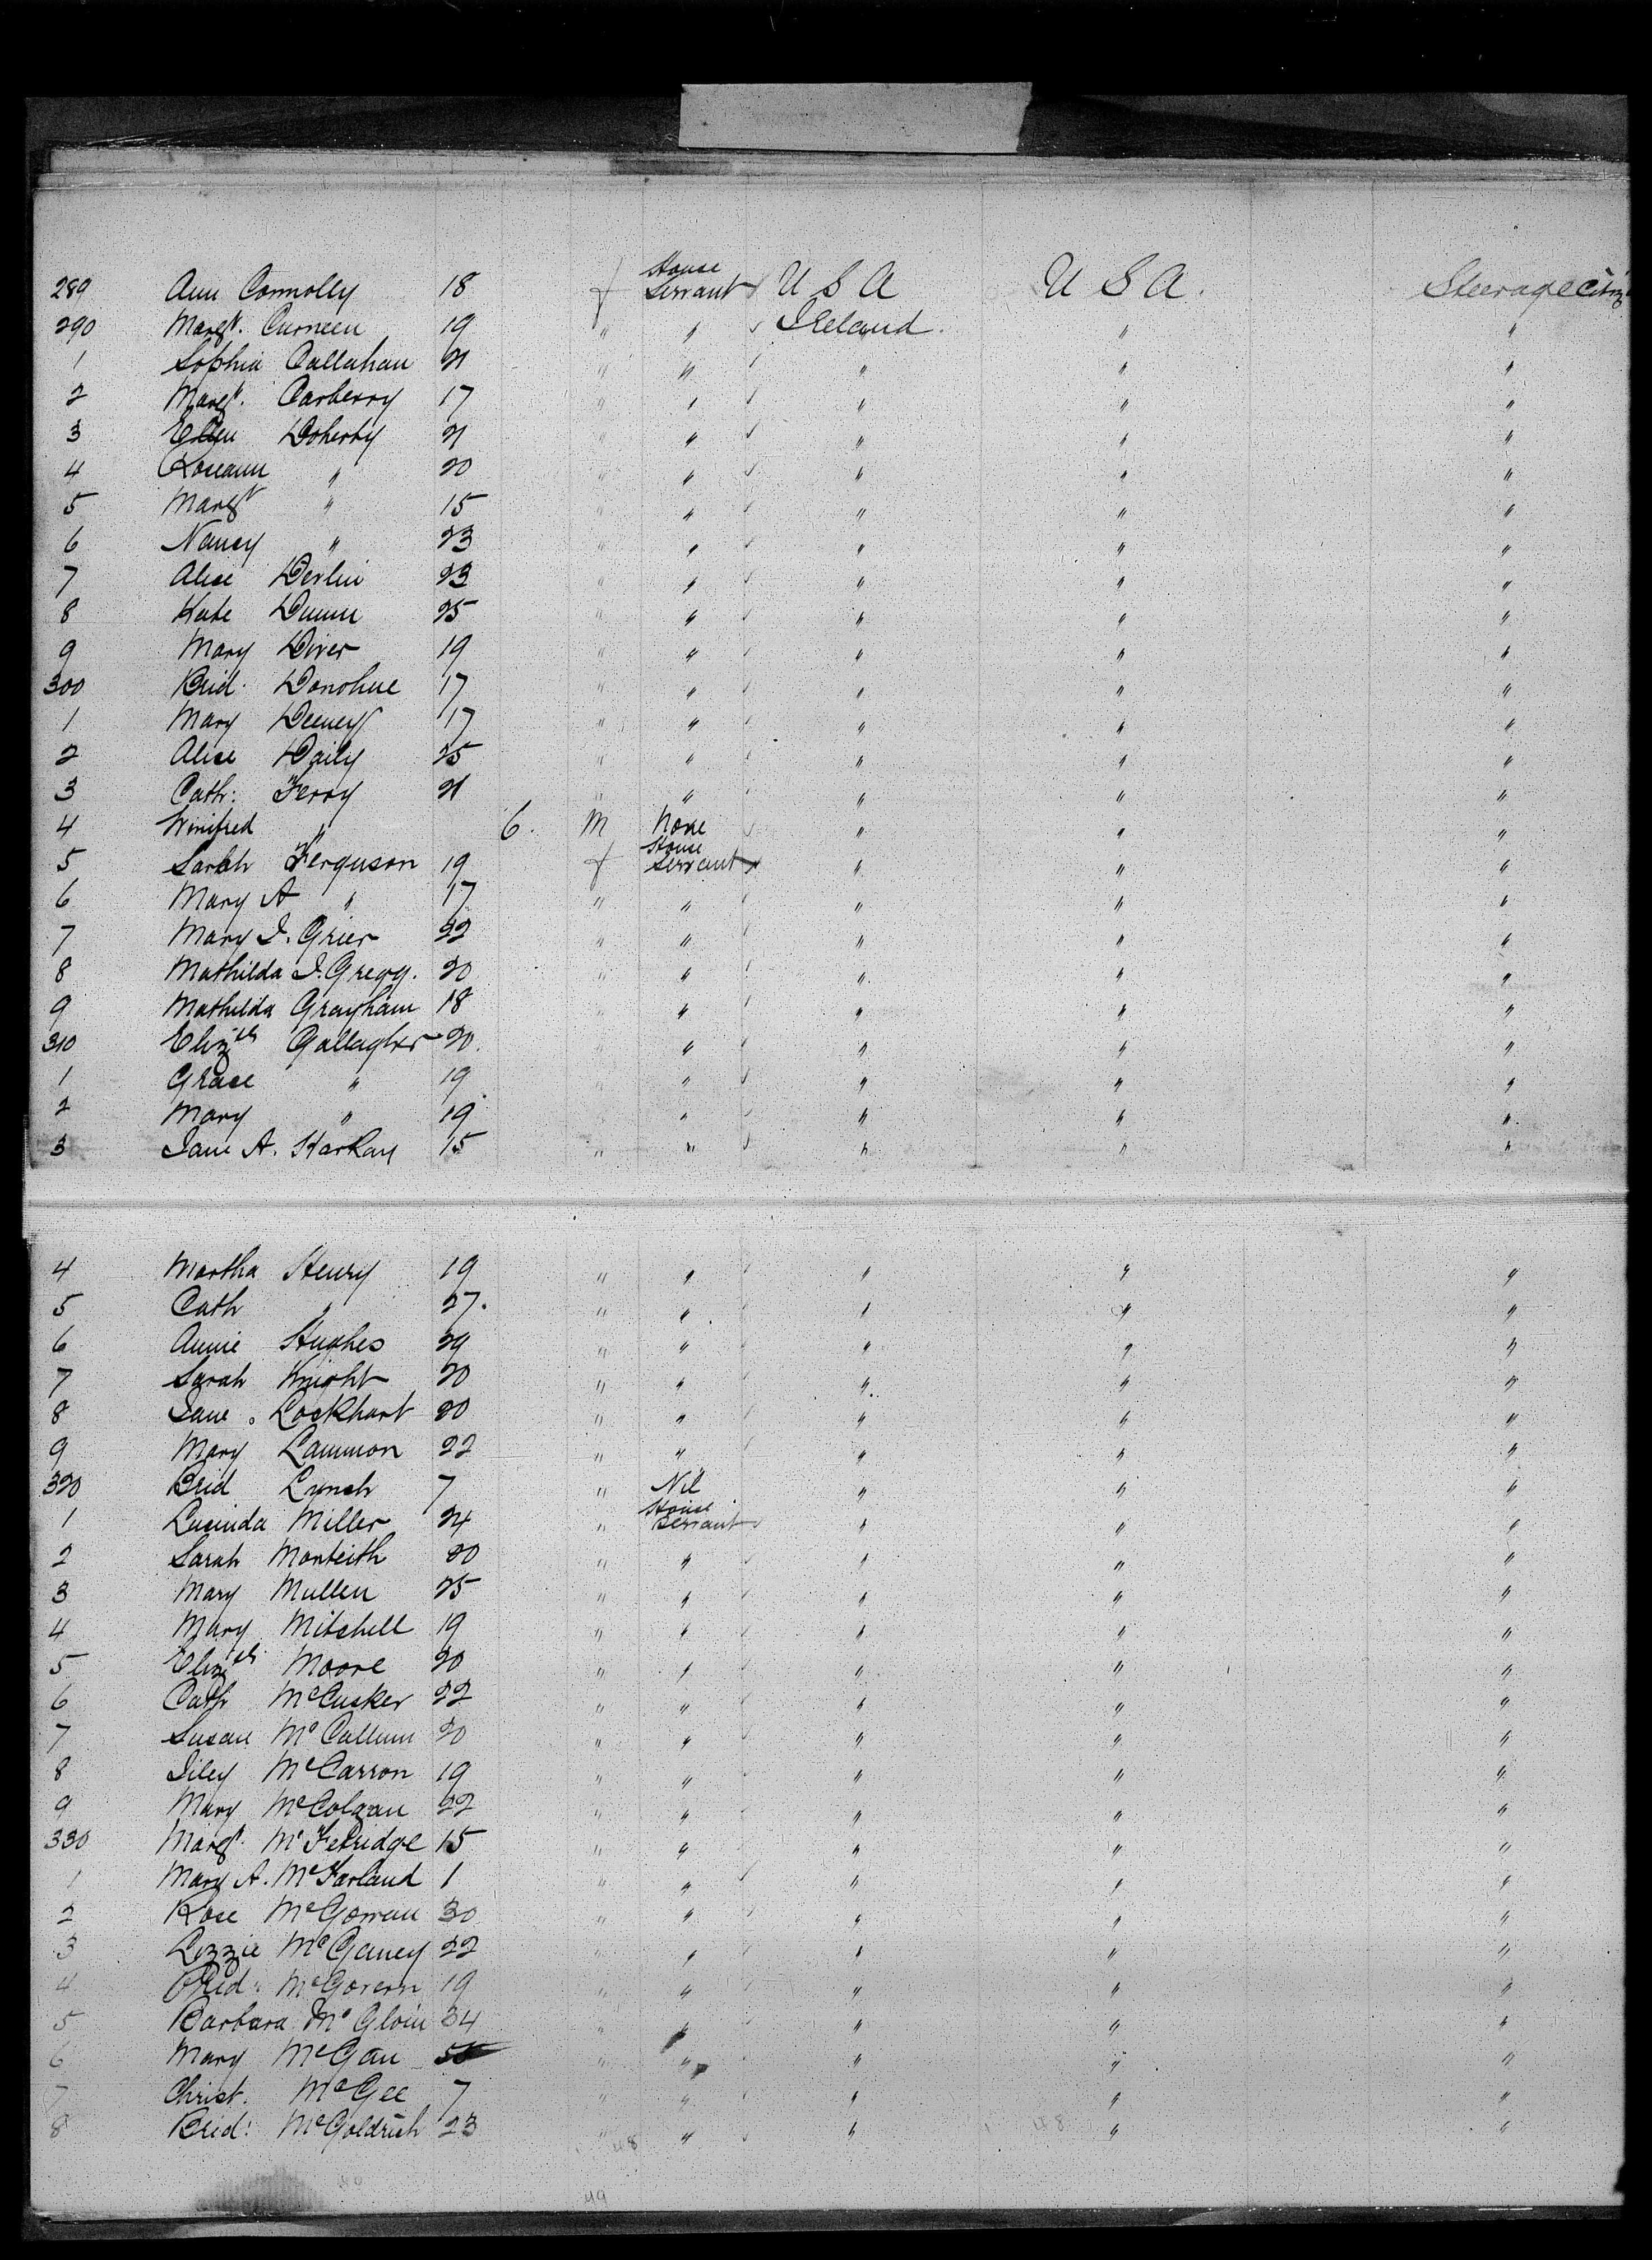 289 Ann Connolly 18 f House Servant U S A U S A. Steerage Citiz
290 Margt. Curneen 19 " " Ireland. " "
1 Sophia Callahan 21 " " " " "
2 Margt. Carberry 17 " " " " "
3 Ellen Doherty 21 " " " " "
4 Roseann " 20 " " " " "
5 Margt " 15 " " " " "
6 Nancy " 23 " " " " "
7 Alice Devlin 23 " " " " "
8 Kate Dunn 25 " " " " "
9 Mary Diver 19 " " " " "
300 Brid. Donohue 17 " " " " "
1 Mary Deeney 17 " " " " "
2 Alice Daily 25 " " " " "
3 Cath: Ferry 21 " " " " "
4 Winifred " 6. m None " " "
5 Sarah Ferguson 19 f House Servant " " "
6 Mary A " 17 " " " " "
7 Mary J. Grier 22 " " " " "
8 Mathilda J. Gregg. 20 " " " " "
9 Mathilda Grayham 18 " " " " "
310 Elizth Gallagher 20. " " " " "
1 Grace " 19 " " " " "
2 Mary " 19 " " " " "
3 Jane A. Harkay 15 " " " " "
4 Martha Henry 19 " " " " "
5 Cath " 27. " " " " "
6 Annie Hughes 29 " " " " "
7 Sarah Knight 20 " " " " "
8 Jane. Lockhart 20 " " " " "
9 Mary Lammon 22 " " " " "
320 Brid Lynch 7 " Nil " " "
1 Lucinda Miller 24 " House Servant " " "
2 Sarah Monteith 20 " " " " "
3 Mary Mullen 25 " " " " "
4 Mary Mitchell 19 " " " " "
5 Elizth Moore 20 " " " " "
6 Cath McCusker 22 " " " " "
7 Susan McCallum 20 " " " " "
8 McCarron 19 " " " " "
9 Mary McColgan 22 " " " " "
330 Margt. McFetridge 15 " " " " "
1 Mary A. McFarland 1 " " " " "
2 Rose McGowan 30 " " " " "
3 Lizzie McGaney 22 " " " " "
4 Brid: McGovern 19 " " " " "
5 Barbara McGloin 34 " " " " "
6 Mary McGan " " " " "
7 Christ. McGee 7 " " " " "
8 Brid: McGoldrick 23 " " " " "
48 48
49